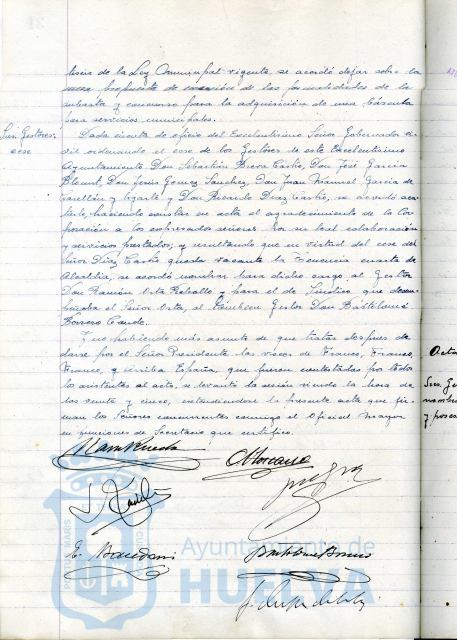 de la Ley Municipal vigente, se acordó dejar sobre la
mesa de exención de las formalidades de la
subasta y concurso para la adquisición de una báscula
para servicios municipales.
Sres. Gestores:
cese
Dada cuenta de oficio del Excelentísimo Señor Gobernador ci-
vil ordenando el cese de los Gestores de este Excelentísimo
Ayuntamiento, Don Sebastián Brera Carbó, Don José García
Don Jesús Gomez Sanchez, Don Juan Manuel García de
Castellón y Ugarte y Don Ricardo Díaz Carbó, se acordó aca-
tarlo, haciendo constar en acta el agradecimiento de la Cor-
poración a los expresados señores por su leal colaboración
y servicios prestados; y resultando que en virtud del cese del
Señor Díaz Carbó queda vacante la Tenencia cuarta de
Alcaldía, se acordó nombrar para dicho cargo al Gestor
Don Ramón Orta Rebollo y para el de Síndico que desem-
peñaba el Señor Orta, al también Gestor Don Bartolomé
Borrero
Y no habiendo más asuntos de que tratar después de
darse por el Señor Presidente las voces de Franco, Franco,
Franco, y Arriba España, que fueron contestadas por todos
los asistentes al acto, se levantó la sesión siendo la hora de
las veinte y cinco, extendiéndose la presente acta que fir-
man los Señores concurrentes conmigo el Oficial Mayor
en funciones de Secretario que certifico.
Bartolome Borrero
Ayuntamiento de
HUELVA
PORTUS MARIS
Acta
Sres. Ge
nombra
y poses